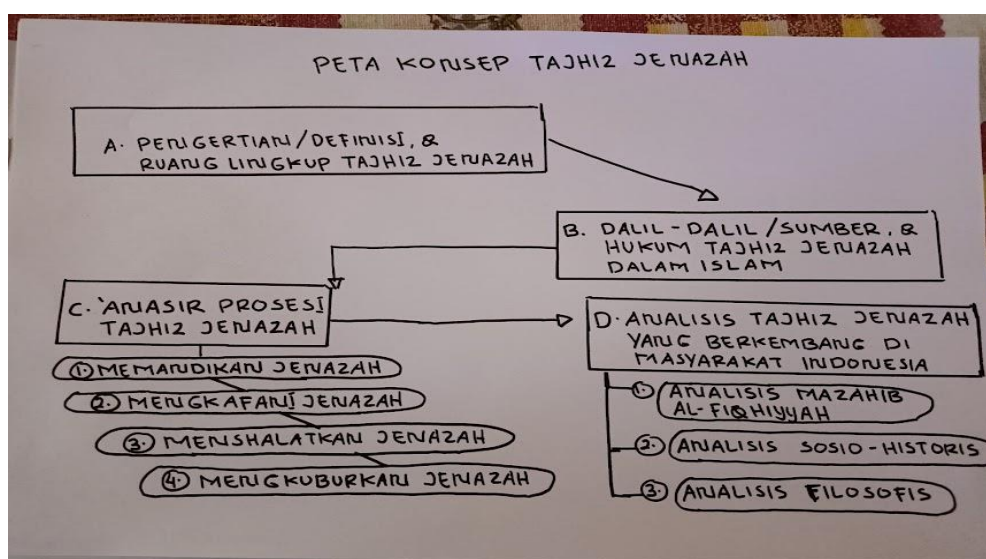 PETA KONSEP TAJHIZ JENAZAH
A. PENGERTIAN/DEFINISI, &
RUANG LINGKUP TAJHIZ JENAZAH
B. DALIL-DALIL/SUMBER, &
HUKUM TAJHIZ JENAZAH
DALAM ISLAM
C. 'ANASIR PROSESI
TAJHIZ JENAZAH
1. MEMANDIKAN JENAZAH
2. MENGKAFANI JENAZAH
3. MENSHALATKAN JENAZAH
4. MENGKUBURKAN JENAZAH
D. ANALISIS TAJHIZ JENAZAH
YANG BERKEMBANG DI
MASYARAKAT INDONESIA
1. ANALISIS MAZAHIB
AL-FIQHIYYAH
2. ANALISIS SOSIO-HISTORIS
3. ANALISIS FILOSOFIS